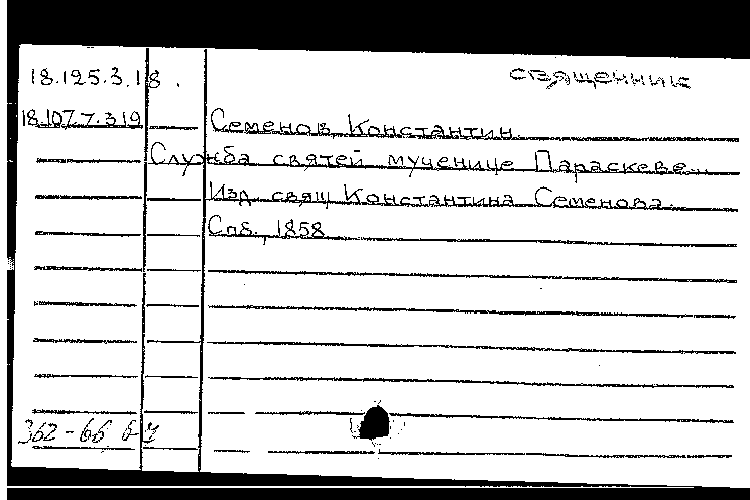 18.125.3.18.
священник
18.107.7.319
Семенов, Константин.
Служба святей мученице Параскеве...
Изд. свящ Константина Семенова.
Спб., 1858
362-66